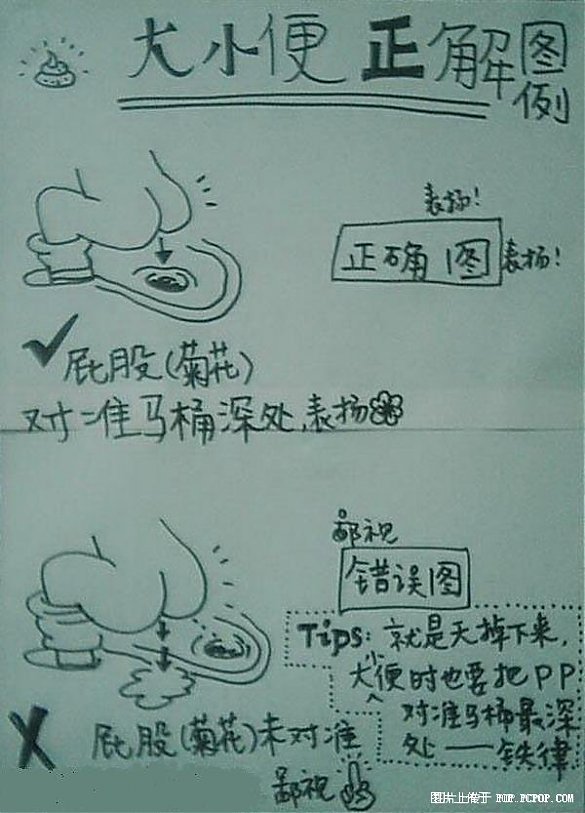 大小便正解图例
表扬!
正确图 表扬!
屁股(菊花)
对准马桶深处,表扬
鄙视
错误图
Tips: 就是天掉下来,
大便时也要把PP
对准马桶最深
处——铁律
屁股(菊花)未对准
鄙视
图片上传于 POP.PCPOP.COM